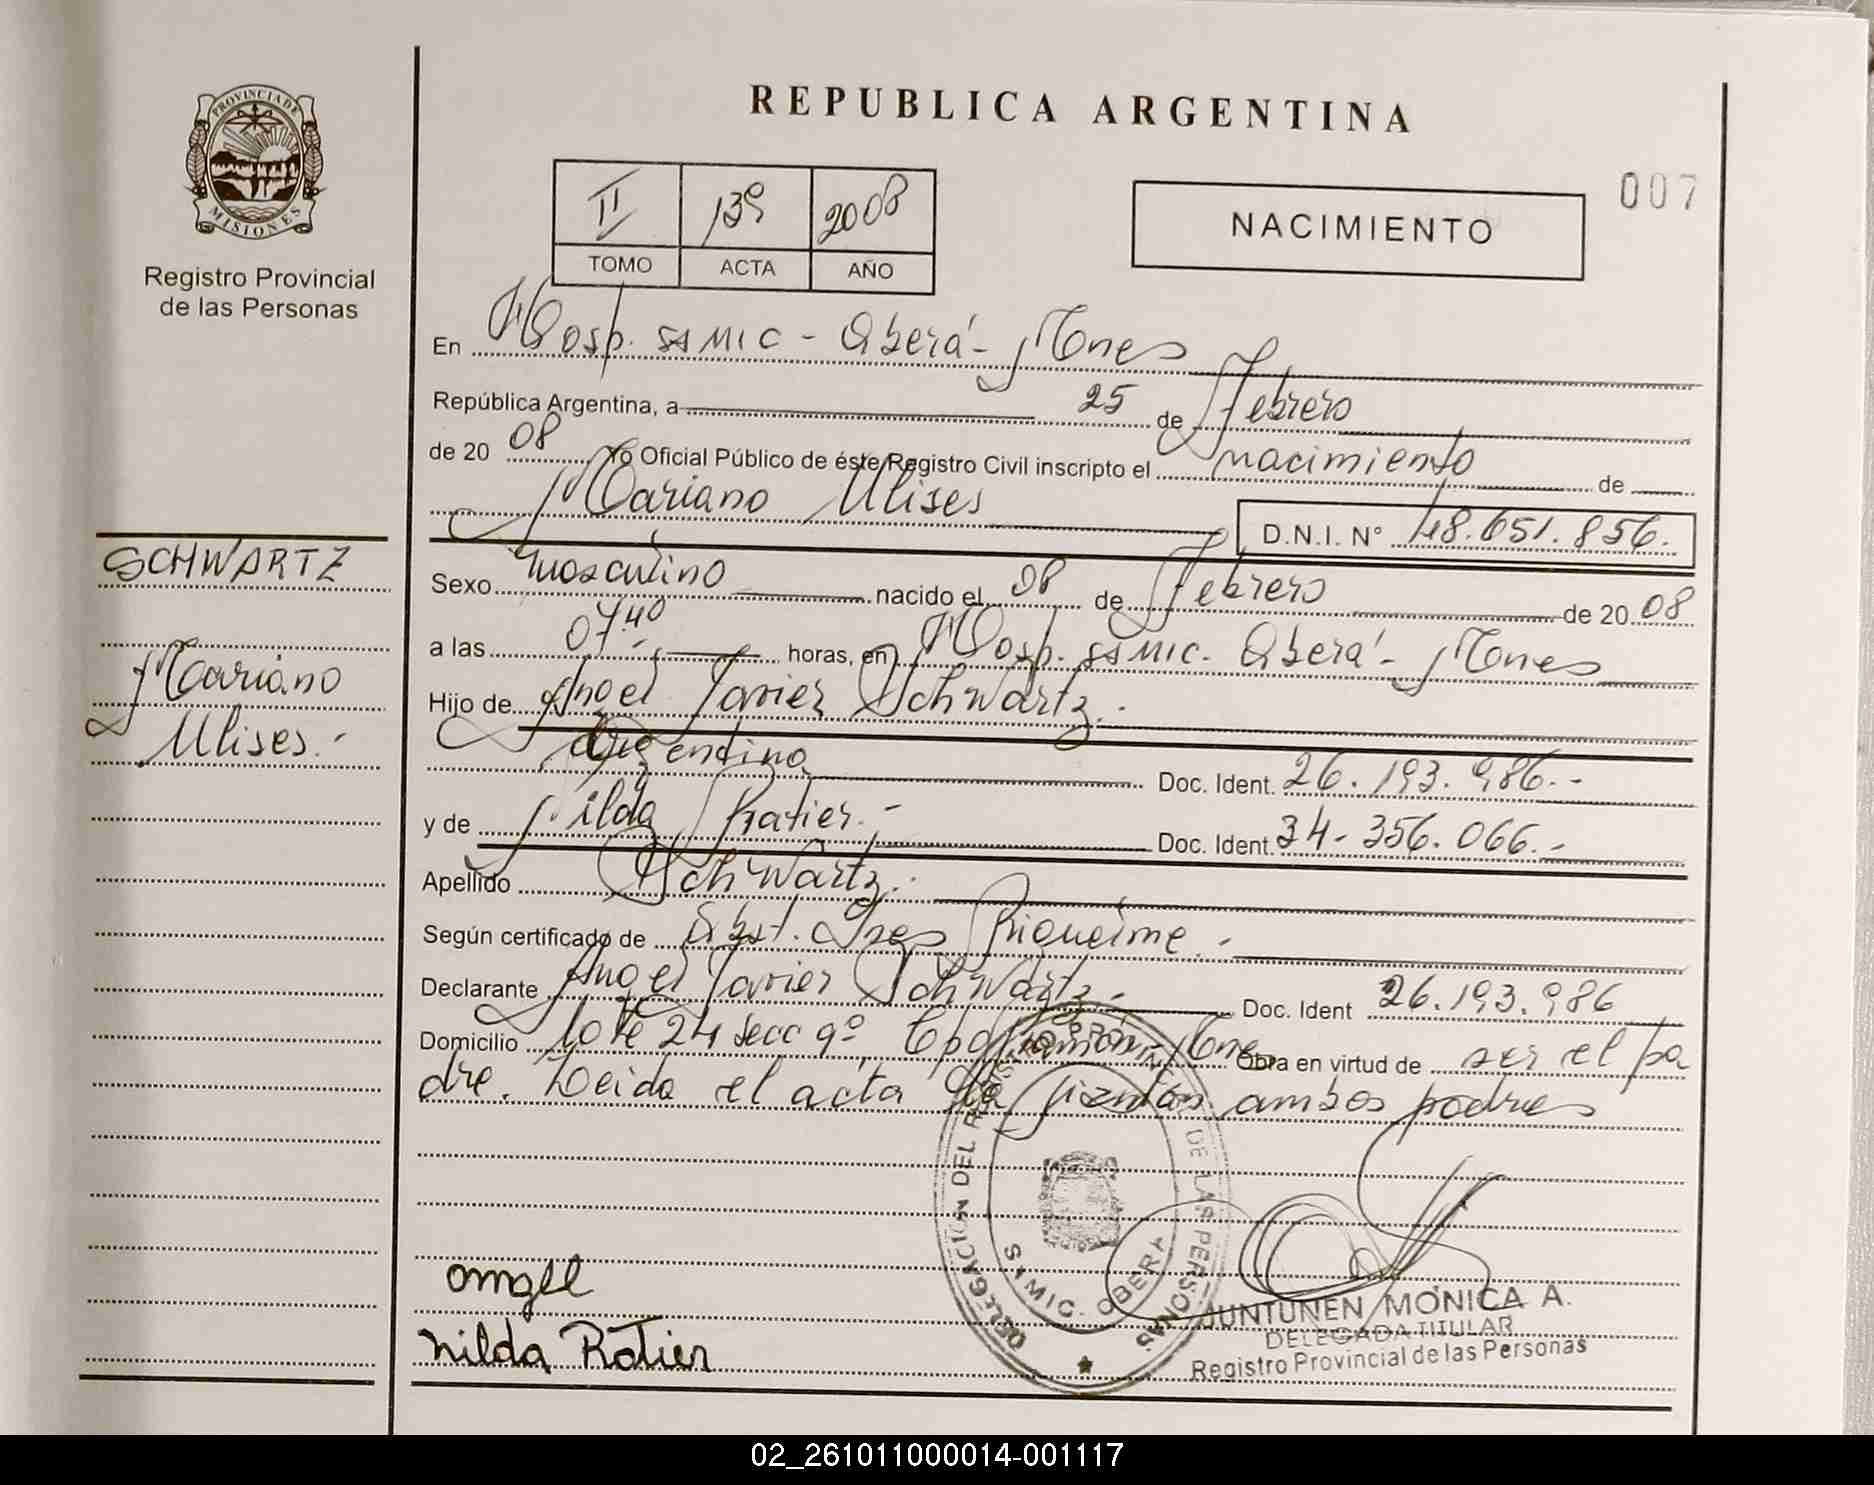 REPUBLICA ARGENTINA
PROVINCIA DE MISIONES
Registro Provincial
de las Personas
II 139 2008
TOMO ACTA AÑO
NACIMIENTO
007
En Hosp. SAMIC - Oberá - Mones
República Argentina, a 25 de Febrero
de 20 08 Yo Oficial Público de éste Registro Civil inscripto el nacimiento de
Mariano Ulises
D.N.I. N° 48.651.856.
SCHWARTZ
Mariano
Ulises.-
Sexo masculino nacido el 08 de Febrero de 20 08
a las 07.40 horas, en Hosp. SAMIC. Oberá - Mones
Hijo de Angel Javier Schwartz.-
Argentino Doc. Ident. 26.193.986.-
y de Nilda Ratier.- Doc. Ident. 34-356.066.-
Apellido Schwartz.-
Según certificado de Obst. Riqueime.-
Declarante Angel Javier Schwartz.- Doc. Ident 26.193.986
Domicilio lote 24 secc 9° Cpo Ramón - Mones Obra en virtud de ser el pa
dre. Leida el acta la firman ambos padres
DELEGACIÓN DEL REGISTRO PROVINCIAL DE LAS PERSONAS
SAMIC. OBERA
Angel
Nilda Ratier
JUNTUNEN MONICA A.
DELEGADA TITULAR
Registro Provincial de las Personas
02_261011000014-001117